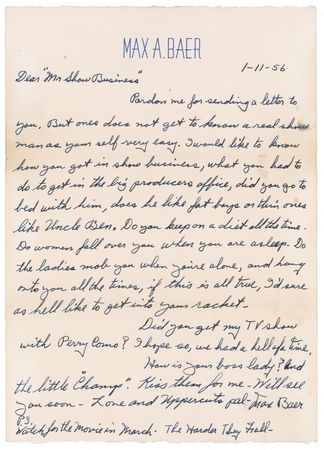 MAX A. BAER
1-11-56
Dear "Mr Show Business"
Pardon me for sending a letter to
you. But ones does not get to know a real show
man as your self very easy. I would like to know
how you got in show business, what you had to
do to get in the big producers office, did you go to
bed with him, does he like fat boys or thin ones
like Uncle Ben, Do you keep on a diet all the time.
Do women fall over you when you are asleep. Do
the ladies mob you when you're alone, and hang
onto you all the times, if this is all true, I'd sure
as hell like to get into your racket.
Did you get my TV show
with Perry Como? I hope so, we had a hell of a time,
How is your boss lady? And
the little "Champs". Kiss them for me - Will see
you soon - Love and Uppercuts pal - Max Baer
P.S.
Watch for the Movie in March. The Harder They Fall -